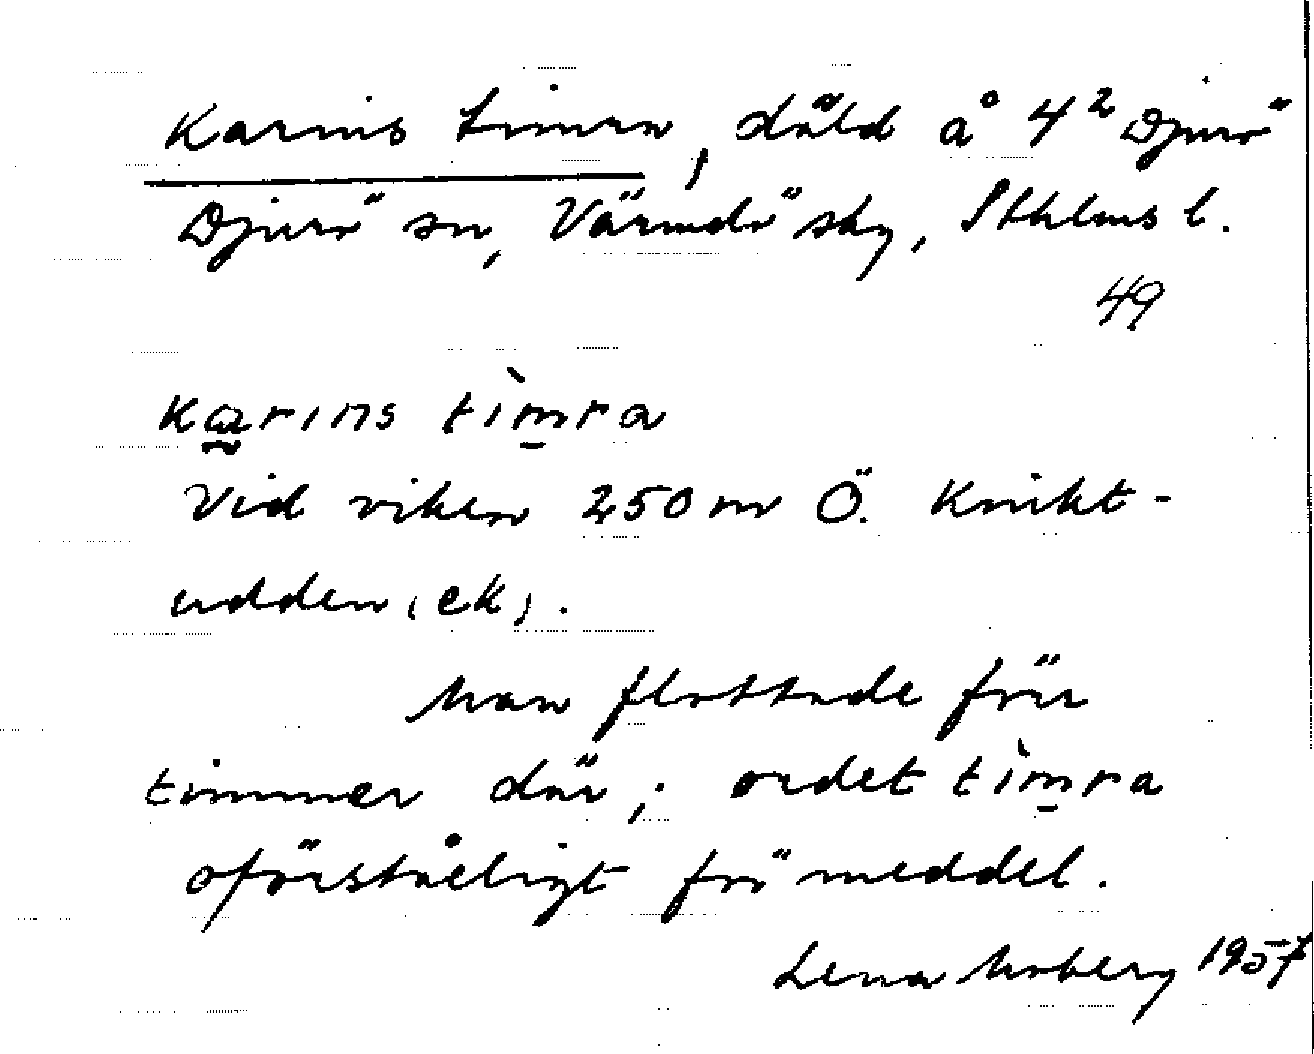 Karins timra, däld å 4² Djurö
Djurö sn, Värmdö skg, Sthlms l.
49
karins tìmra
Vid viken 250 m Ö. Knikt-
udden (ek).
Man flottade förr
timmer där; ordet tìmra
oförståeligt för meddel.
Lena Moberg 1957